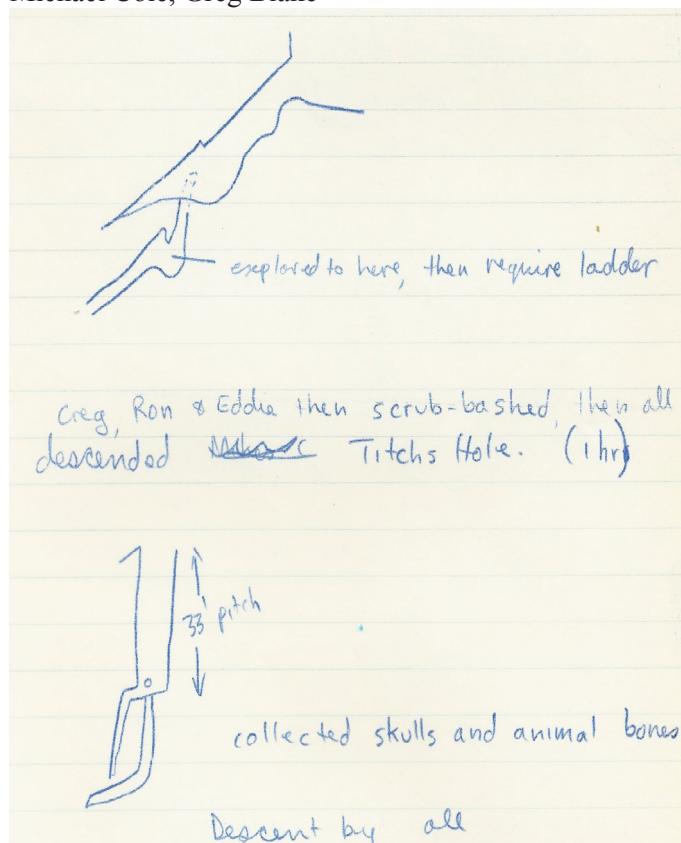 explored to here, then require ladder
Greg, Ron & Eddie then scrub-bashed, then all
descended Titchs Hole. (1 hr)
33' pitch
collected skulls and animal bones
Descent by all